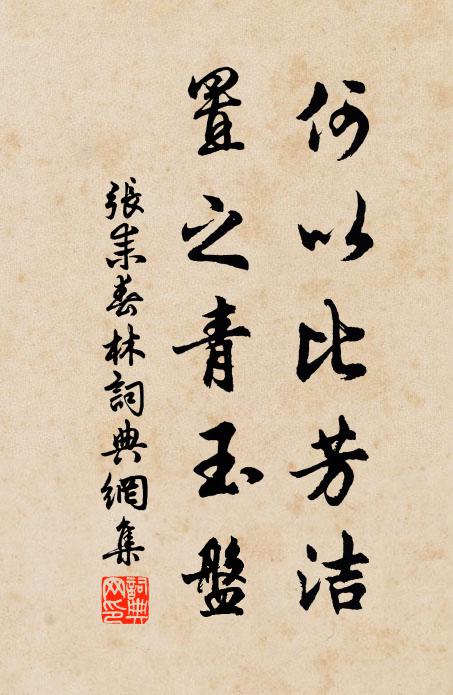 何以比芳洁
置之青玉盤
張耒春林詞典網集
詞典网印